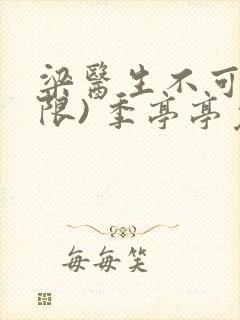 梁醫生不可
限) 季亭亭
每每笑